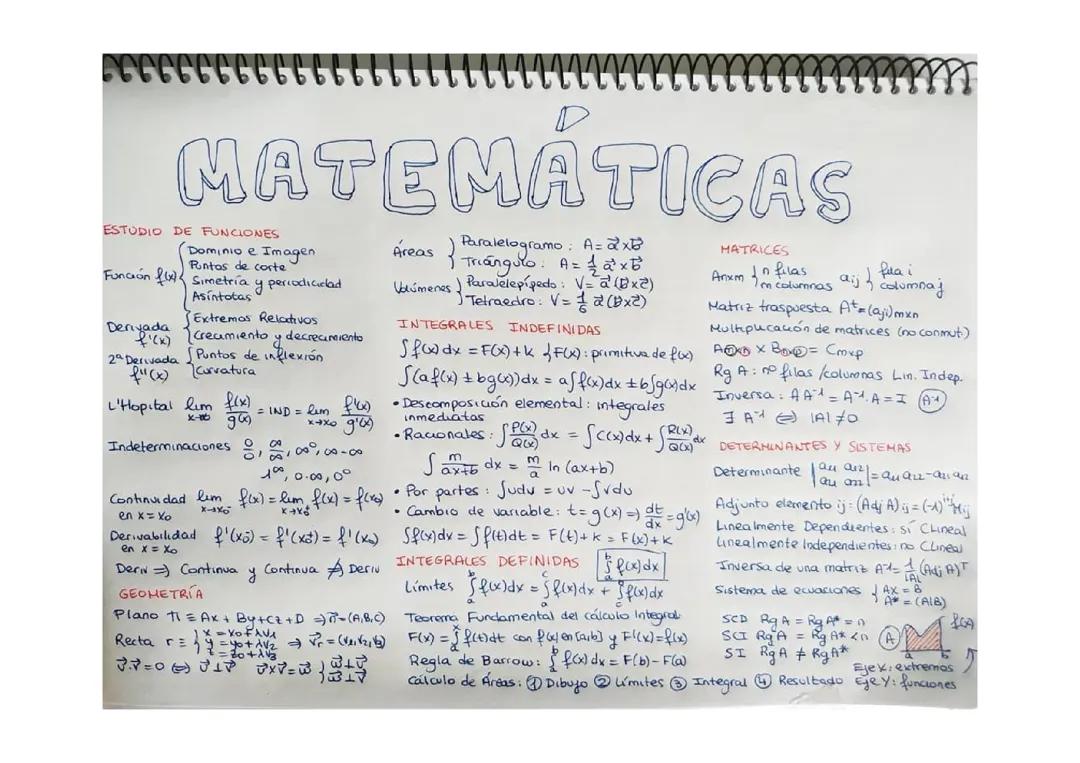 MATEMÁTICAS
ESTUDIO DE FUNCIONES
Función f(x) { Dominio e Imagen
Puntos de corte
Simetría y periodicidad
Asíntotas
Derivada f'(x) { Extremos Relativos
Crecimiento y decrecimiento
2ª Derivada f''(x) { Puntos de inflexión
Curvatura
L'Hopital lim f(x)/g(x) = IND = lim x→x0 f'(x)/g'(x)
Indeterminaciones 0/0, ∞/∞, ∞⁰, ∞-∞
1^∞, 0·∞, 0⁰
Continuidad en x=x0 lim x→x0⁻ f(x) = lim x→x0⁺ f(x) = f(x0)
Derivabilidad en x=x0 f'(x0⁻) = f'(x0⁺) = f'(x0)
Deriv ⇒ Continua y Continua ⇏ Deriv
GEOMETRÍA
Plano π ≡ Ax + By + Cz + D ⇒ n⃗ = (A,B,C)
Recta r ≡ { x = x0 + λv1
y = y0 + λv2 ⇒ v⃗r = (v1,v2,v3)
z = z0 + λv3
v⃗·v⃗ = 0 ⇔ v⃗ ⊥ v⃗ u⃗×v⃗ = w⃗ { w⃗ ⊥ u⃗
w⃗ ⊥ v⃗
Áreas } Paralelogramo: A = a⃗ x b⃗
Triángulo: A = 1/2 a⃗ x b⃗
Volúmenes } Paralelepípedo: V = a⃗ (b⃗ x c⃗)
Tetraedro: V = 1/6 a⃗ (b⃗ x c⃗)
INTEGRALES INDEFINIDAS
∫f(x)dx = F(x)+K { F(x): primitiva de f(x)
∫(af(x) ± bg(x))dx = a∫f(x)dx ± b∫g(x)dx
• Descomposición elemental: integrales
inmediatas
• Racionales: ∫P(x)/Q(x) dx = ∫C(x)dx + ∫R(x)/Q(x) dx
∫ m/(ax+b) dx = m/a ln (ax+b)
• Por partes: ∫udv = uv - ∫vdu
• Cambio de variable: t = g(x) ⇒ dt/dx = g'(x)
∫f(x)dx = ∫f(t)dt = F(t)+K = F(x)+K
INTEGRALES DEFINIDAS ∫ₐᵇ f(x)dx
Límites ∫ₐᵇ f(x)dx = ∫ₐᶜ f(x)dx + ∫f(x)dx
Teorema Fundamental del cálculo Integral
F(x) = ∫ₐˣ f(t)dt con f(x) en [a,b] y F'(x) = f(x)
Regla de Barrow: ∫ₐᵇ f(x)dx = F(b) - F(a)
Cálculo de Áreas: ① Dibujo ② Límites ③ Integral ④ Resultado
MATRICES
Anxm { n filas
m columnas aij } fila i
columna j
Matriz traspuesta A^t = (aji) mxn
Multiplicación de matrices (no conmut.)
Amxn x Bnxp = Cmxp
Rg A: nº filas/columnas Lin. Indep.
Inversa: A A⁻¹ = A⁻¹·A = I (A⁻¹)
∃ A⁻¹ ⇔ |A| ≠ 0
DETERMINANTES Y SISTEMAS
Determinante |a11 a12
a21 a22| = a11 a22 - a21 a12
Adjunto elemento ij: (Adj A)ij = (-1)^i+j Mij
Linealmente Dependientes: sí CLineal
Linealmente Independientes: no CLineal
Inversa de una matriz A⁻¹ = 1/|A| (Adj A)^T
Sistema de ecuaciones { AX = B
A* = (A|B)
SCD RgA = RgA* = n
SCI RgA = RgA* < n
SI RgA ≠ RgA*
A a b f(x)
Eje X: extremos
Eje Y: funciones